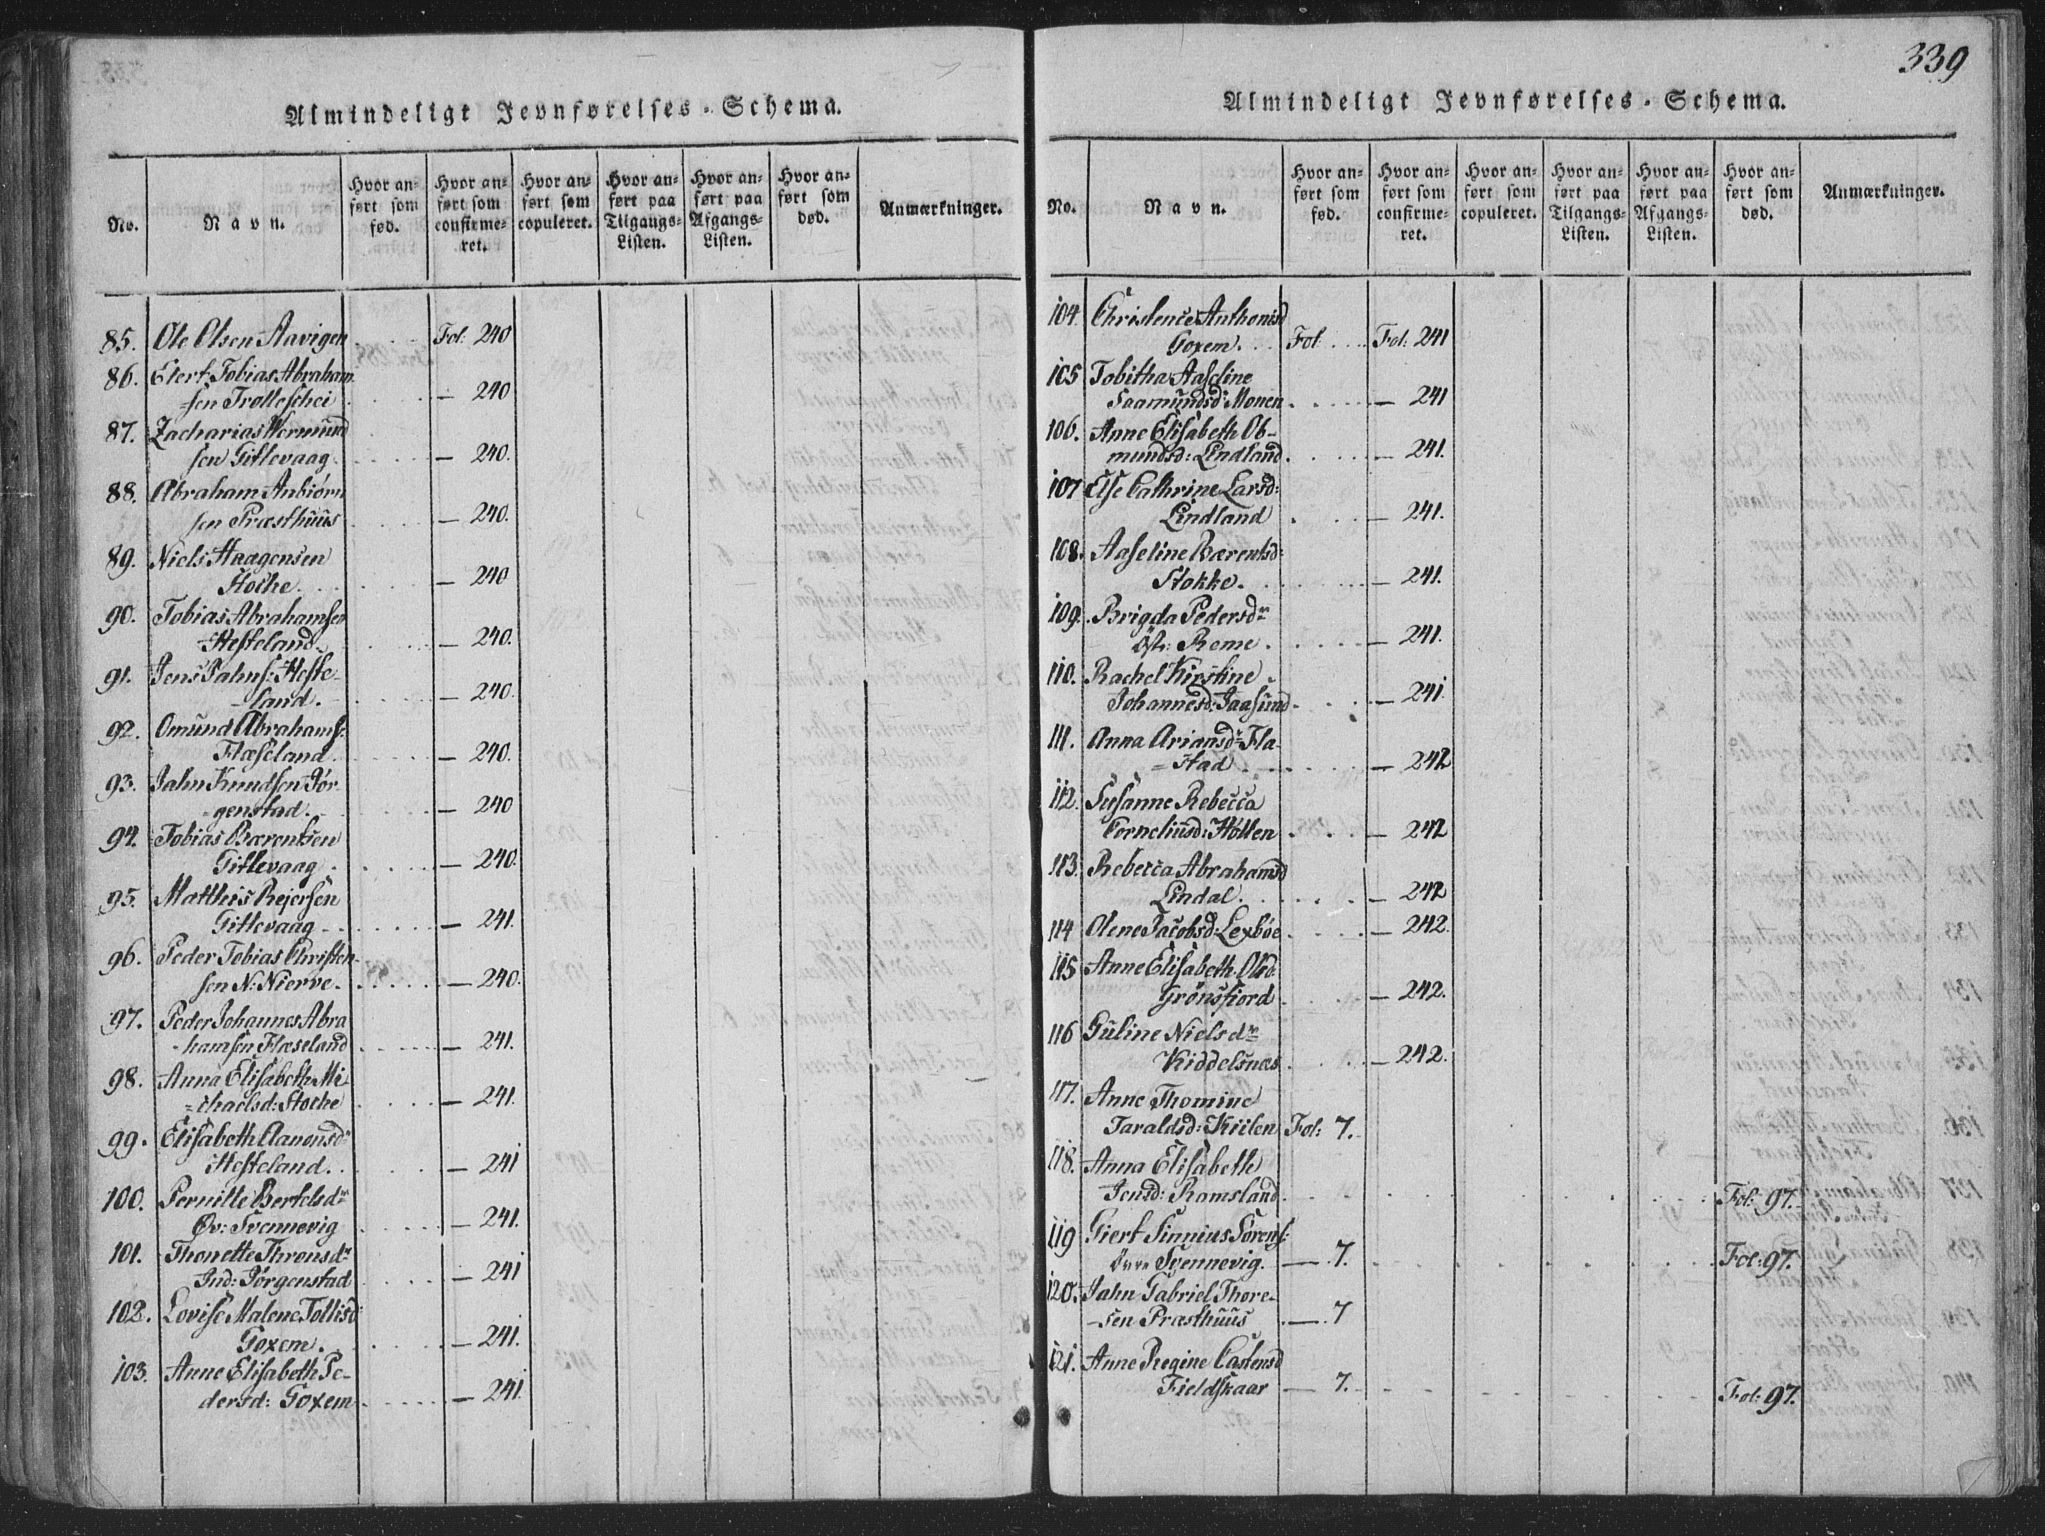 Almindeligt Jevnførelses-Schema.
No. Navn. Hvor anført som fød. Hvor anført som confirmeret. Hvor anført som copuleret. Hvor anført paa Tilgangs-Listen. Hvor anført paa Afgangs-Listen. Hvor anført som død. Anmærkninger.
85. Ole Olsen Aavigen Fol: 240
86. Elert Tobias Abraham
=sen Trølleschei — 240
87. Zacharias Wermund
sen Gitlevaag — 240.
88. Abraham Anbiørn
sen Præsthuus — 240.
89. Niels Haagensen
Stoche. — 240
90. Tobias Abrahamsen
=Hesteland. — 240.
91. Jens Jahns: Heste=
=land. — 240.
92. Omund Abrahams:
Flæseland. — 240.
93. Jahn Knudsen Jør
=genstad. — 240
94. Tobias Bærentsen
Gitlevaag — 240.
95. Matthis Rejersen
Gitlevaag — 241.
96. Peder Tobias Christen
sen N: Nierve. — 240.
97. Peder Johannes Abra
=hamsen Flæseland — 241.
98. Anna Elisabeth Mi
=chaelsd: Stoche — 241.
99. Elisabeth Aanonsdr
Hesteland. — 241
100. Pernille Bertelsdr
Øv: Svennevig — 241.
101. Thonette Thronsdr
Ind: Jørgenstad — 241
102. Lovise Malene Tollisd:
Goxem. — 241.
103. Anne Elisabeth Pe=
dersd: Goxem — 241.
339
Almindeligt Jevnførelses-Schema.
No. Navn. Hvor anført som fød. Hvor anført som confirmeret. Hvor anført som copuleret. Hvor anført paa Tilgangs-Listen. Hvor anført paa Afgangs-Listen. Hvor anført som død. Anmærkninger.
104. Christence Anthonisd
Goxem. Fol Fol: 241
105 Tobitha Aaseline
Saamundsd: Monen — 241
106. Anne Elisabeth Ob=
mundsd: Lindland — 241.
107 Else Cathrine Larsd:
Lindland — 241.
108. Aaseline Bærentsd:
Stokke. — 241.
109. Brigda Pedersdr
Øst: Reme — 241.
110. Rachel Kirstine
Johannesd: Jaasund — 241
111. Anna Ariansdr Fla=
=stad — 242
112. Susanne Rebecca
Corneliusd: Hollen — 242
113. Rebecca Abrahamsd
Lindal. — 242
114 Olene Jacobsd: Lexbøe — 242.
115 Anne Elisabeth Olsd
Grønsfiord — 242.
116 Guline Nielsdr
Kiddelsnæs — 242.
117. Anne Thomine
Taraldsd: Kiilen Fol: 7.
118. Anna Elisabeth
Jensd: Ramsland Fol: 97.
119 Giert Sinnius Sørens:
Svennevig. — 7. Fol: 97.
120. Jahn Gabriel Thore=
=sen Præsthuus — 7
121. Anne Regine Castensd
Fieldskaar — 7. Fol: 97.